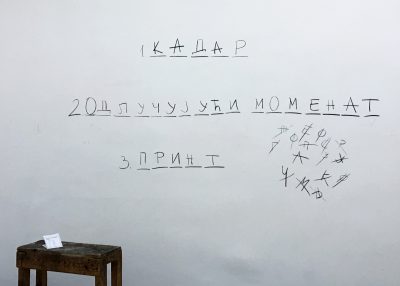 1. КАДАР
2 ОДЛУЧУЈУЋИ МОМЕНАТ
3. ПРИНТ